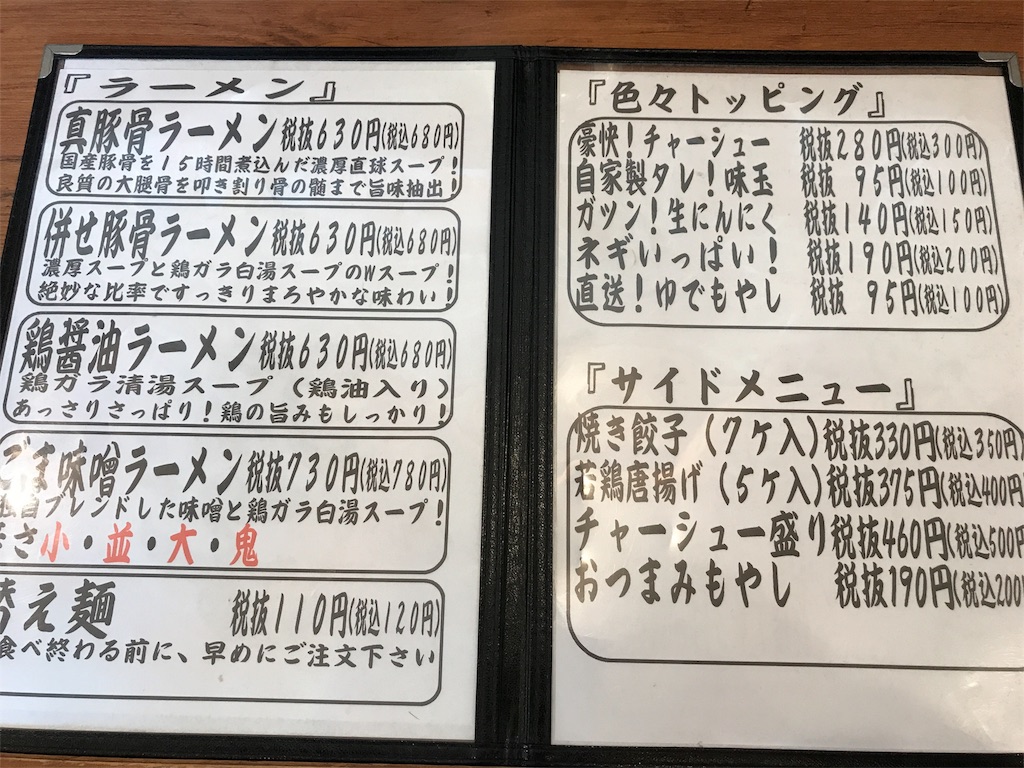 『ラーメン』
真豚骨ラーメン 税抜630円(税込680円)
国産豚骨を15時間煮込んだ濃厚直球スープ!
良質の大腿骨を叩き割り骨の髄まで旨味抽出!
併せ豚骨ラーメン 税抜630円(税込680円)
濃厚スープと鶏ガラ白湯スープのWスープ!
絶妙な比率ですっきりまろやかな味わい!
鶏醤油ラーメン 税抜630円(税込680円)
鶏ガラ清湯スープ(鶏油入り)
あっさりさっぱり!鶏の旨みもしっかり!
ごま味噌ラーメン 税抜730円(税込780円)
独自ブレンドした味噌と鶏ガラ白湯スープ!
さ 小・並・大・鬼
替え麺 税抜110円(税込120円)
食べ終わる前に、早めにご注文下さい
『色々トッピング』
豪快!チャーシュー 税抜280円(税込300円)
自家製タレ!味玉 税抜 95円(税込100円)
ガツン!生にんにく 税抜140円(税込150円)
ネギいっぱい! 税抜190円(税込200円)
直送!ゆでもやし 税抜 95円(税込100円)
『サイドメニュー』
焼き餃子(7ケ入)税抜330円(税込350円)
若鶏唐揚げ(5ケ入)税抜375円(税込400円
チャーシュー盛り 税抜460円(税込500円
おつまみもやし 税抜190円(税込200